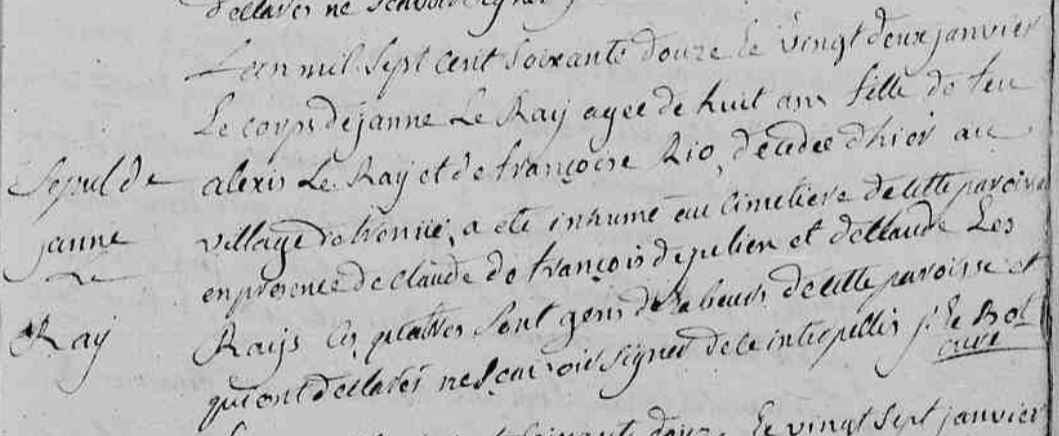 declarés ne scavoir signer
L'an mil sept cent soixante douze le vingt deux janvier
Le corps de janne Le Ray agee de huit ans fille de feu
Sepul de alexis Le Ray et de françoise Rio, decedee d'hier au
janne village de a eté inhumé au cimetiere de cette paroisse
Le en presence de claude de françois de julien et de claude Les
Ray Rays les quatres sont gens de labeurs de cette paroisse et
qui ont declarés ne scavoir signer de ce interpellés j: le Bol
curé
soixante douze le vingt sept janvier